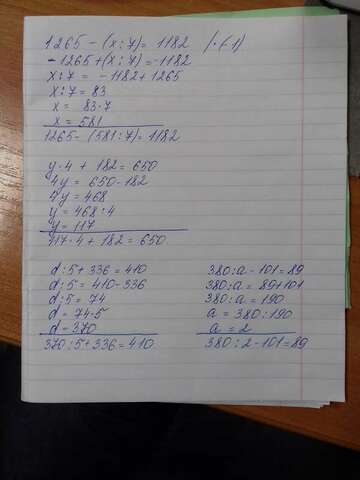 1265 - (x : 7) = 1182 /·(-1)
- 1265 + (x : 7) = -1182
x : 7 = -1182 + 1265
x : 7 = 83
x = 83·7
x = 581
1265 - (581 : 7) = 1182
y·4 + 182 = 650
4y = 650 - 182
4y = 468
y = 468 : 4
y = 117
417·4 + 182 = 650
d : 5 + 336 = 410
d : 5 = 410 - 336
d : 5 = 74
d = 74·5
d = 370
370 : 5 + 336 = 410
380 : a - 101 = 89
380 : a = 89 + 101
380 : a = 190
a = 380 : 190
a = 2
380 : 2 - 101 = 89